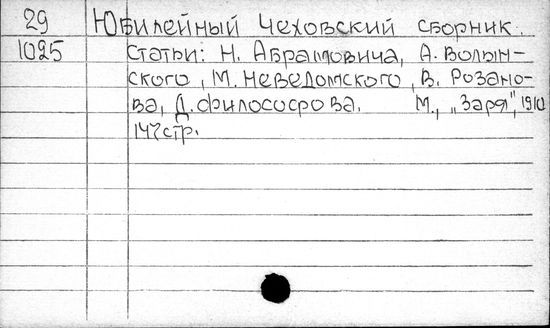 29 Юбилейный Чеховский сборник.
1025 Статьи: Н. Абрамовича, А. Волын-
ского, М. Неведомского, В. Розано-
ва, Д. Философова. М., „Заря", 1910
147 стр.